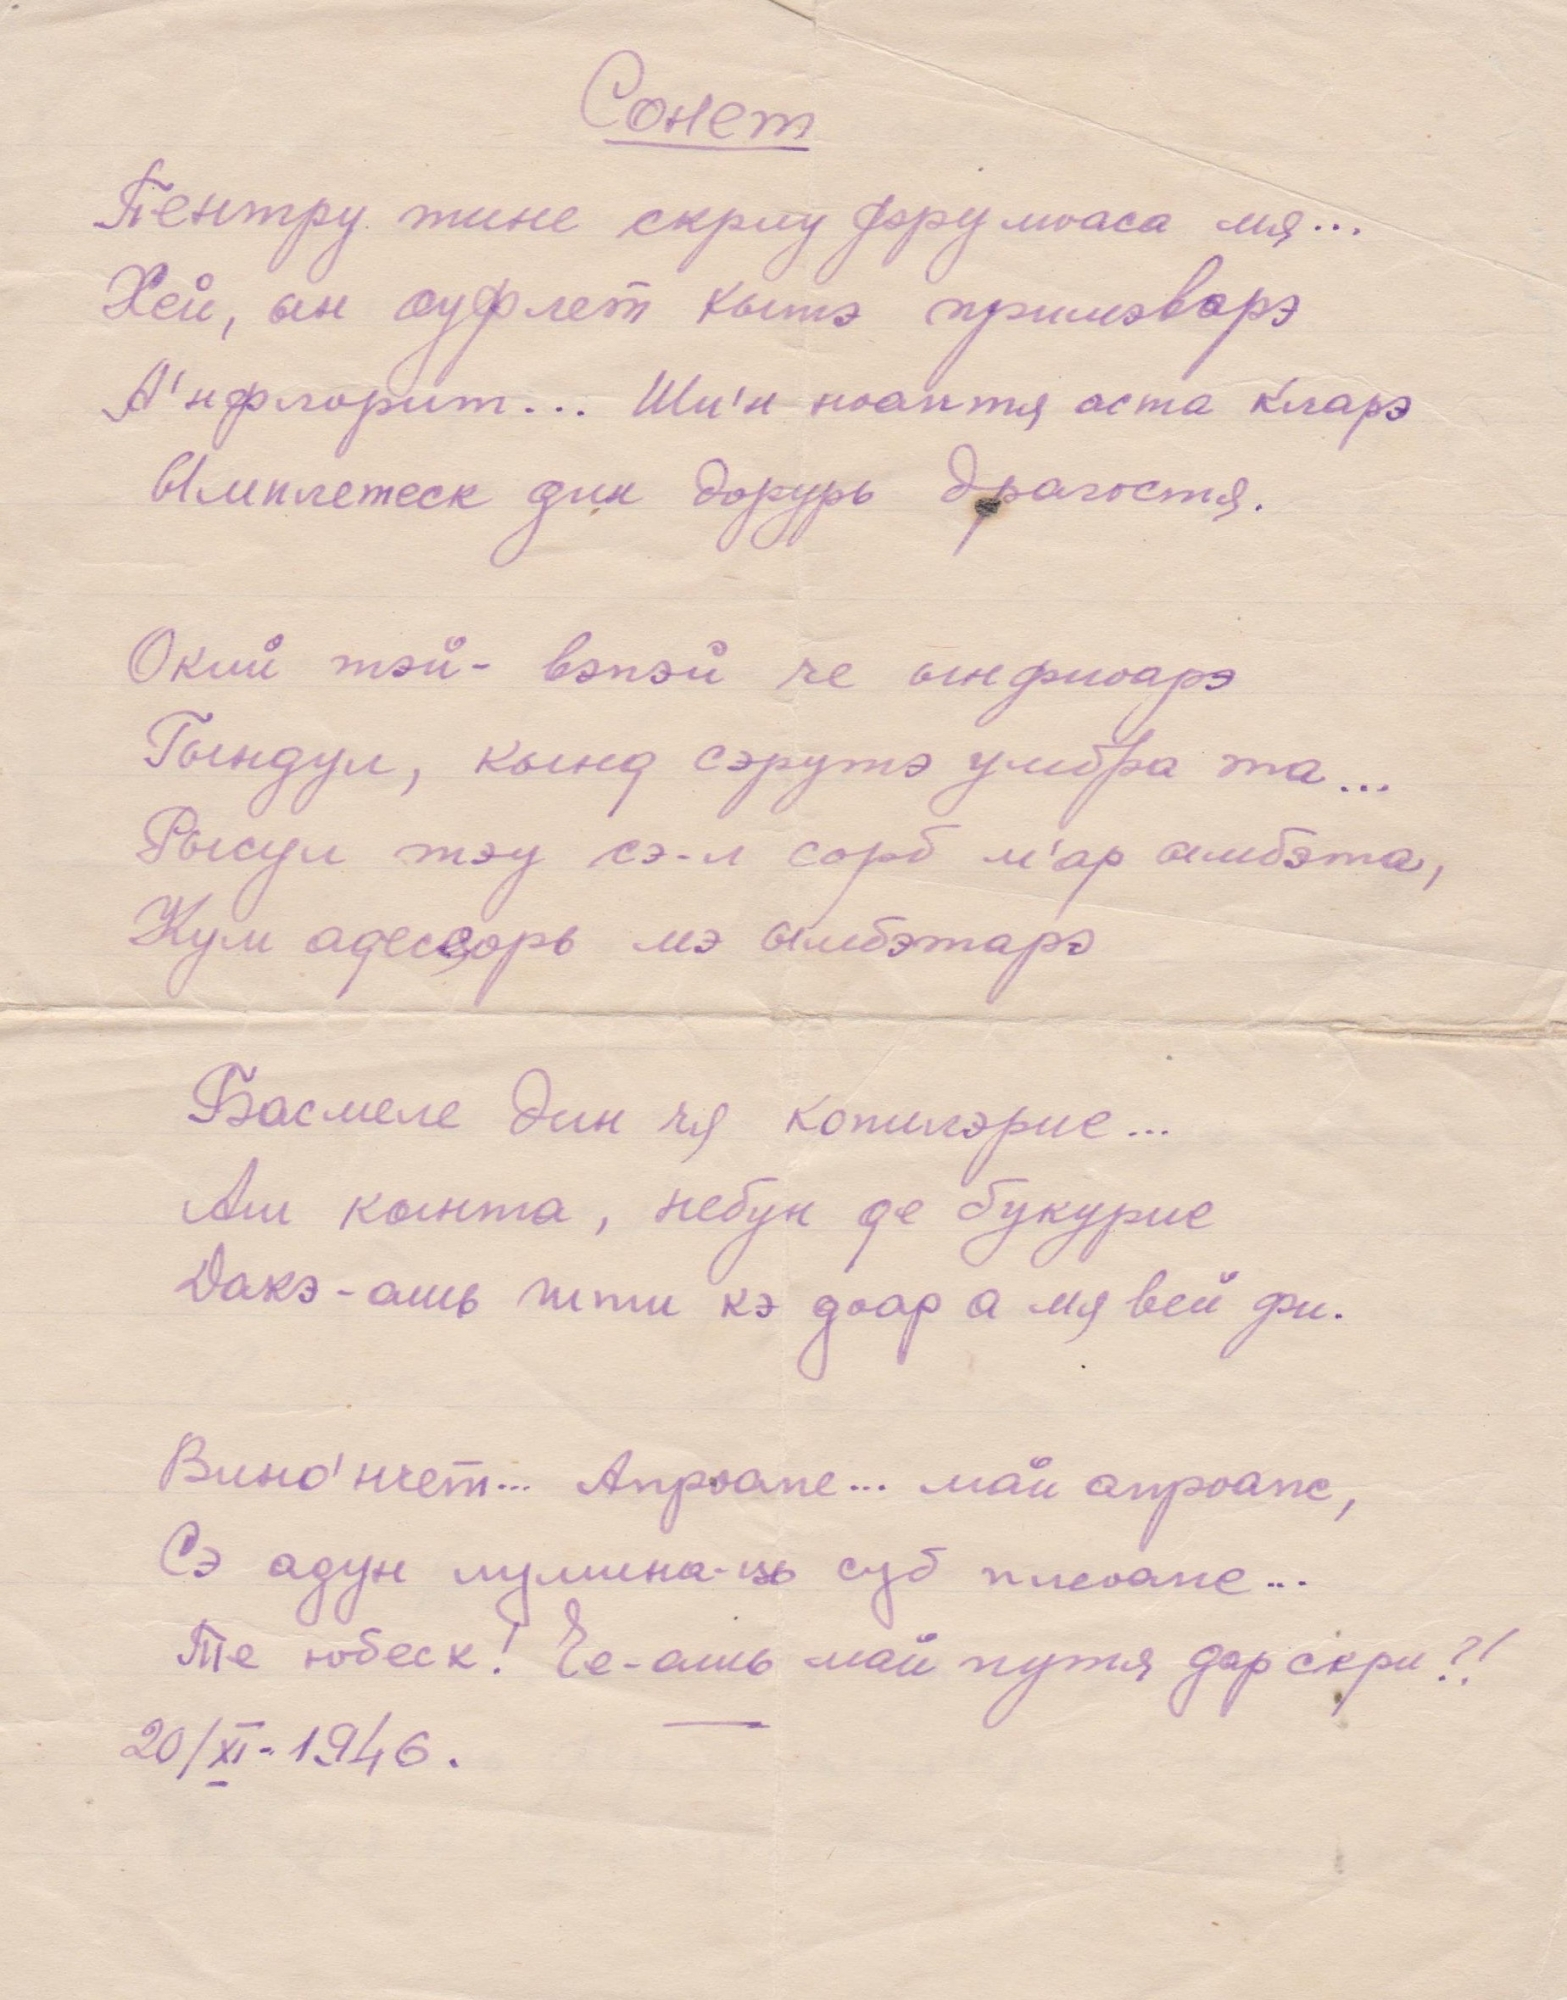 Сонет
Пентру тине скриу фэрумоаса мя...
Хей, ын суфлет кытэ примэварэ
А'нфлорит... Ши'н ноаптя аста кларэ
Ымплетеск дин дорурь драгостя.
Окий тэй - вэпэй че ынфиоарэ
Гындул, кынд сэрутэ умбра та...
Рысул тэу сэ-л сорб м'ар ымбэта,
Кум адесеорь мэ ымбэтарэ
Басмеле дин чя копилэрие...
Аш кынта, небун де букурие
Дакэ-ашь шти кэ доар а мя вей фи.
Вино'нчет... Апроапе... май апроапе,
Сэ адун лумина-ць суб плеоапе...
Те юбеск! Че-ашь май путя дар скри?!
20/XI-1946.